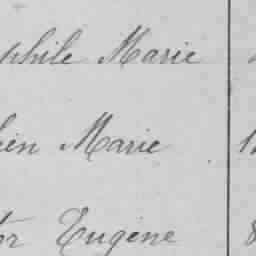 phile Marie
ien Marie 1
or Eugène 8